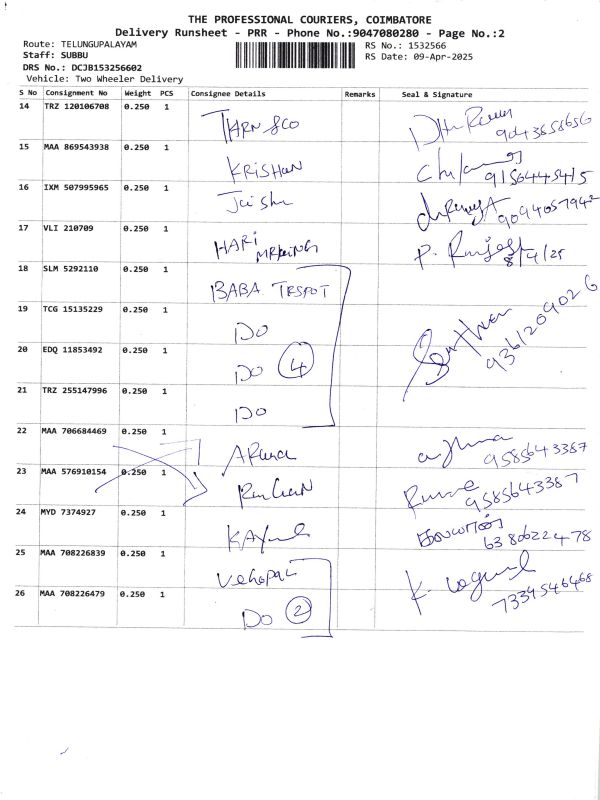 THE PROFESSIONAL COURIERS, COIMBATORE
Delivery Runsheet - PRR - Phone No.:9047080280 - Page No.:2
Route: TELUNGUPALAYAM
Staff: SUBBU
DRS No.: DCJB153256602
Vehicle: Two Wheeler Delivery
RS No.: 1532566
RS Date: 09-Apr-2025
S No Consignment No Weight PCS Consignee Details Remarks Seal & Signature
14 TRZ 120106708 0.250 1
15 MAA 869543938 0.250 1 KRISHAN 9156445415
16 IXM 507995965 0.250 1
17 VLI 210709 0.250 1 HARI 8/4/25
18 SLM 5292110 0.250 1 BABA
19 TCG 15135229 0.250 1 DO 9361209026
20 EDQ 11853492 0.250 1 DO 4
21 TRZ 255147996 0.250 1 DO
22 MAA 706684469 0.250 1 ARUNA 9585643387
23 MAA 576910154 0.250 1 9585643387
24 MYD 7374927 0.250 1 6380622478
25 MAA 708226839 0.250 1 VENOPAL
26 MAA 708226479 0.250 1 DO 2 7339546468